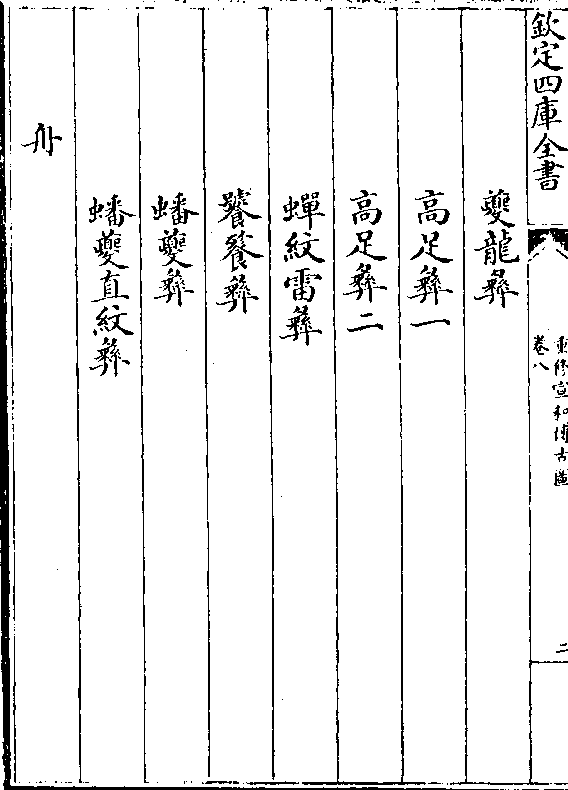 欽定四庫全書
重修宣和博古圖
卷八
二
夔龍彝
高足彝一
高足彝二
蟬紋雷彝
饕餮彝
蟠夔彝
蟠夔直紋彝
舟